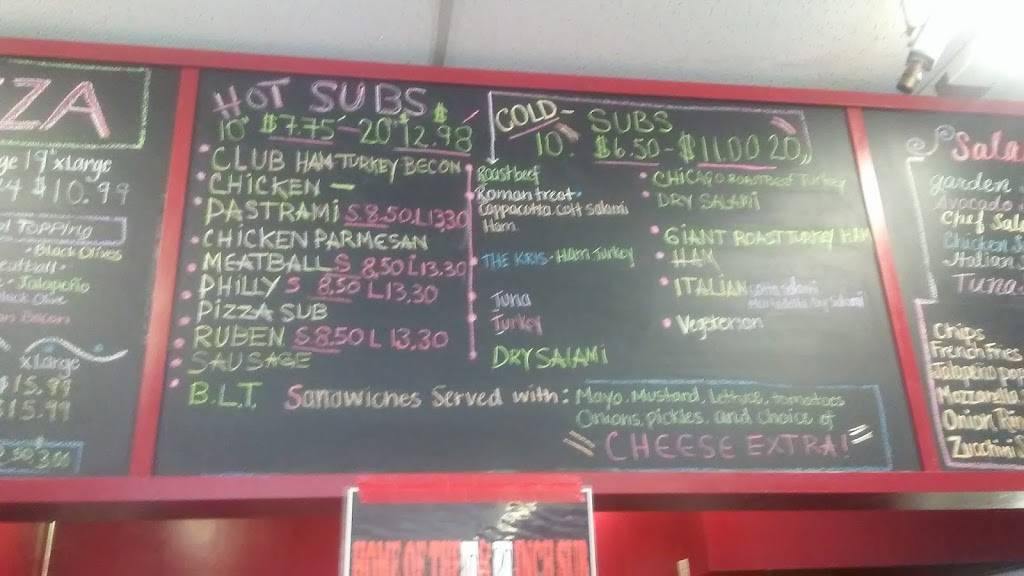 ZZA
19" xLarge
$10.99
TOPPING
Black Olives
Jalapeño
Black Olive
Bacon
xLarge
$15.99
$15.99
3.00
HOT SUBS
10" $7.75 - 20" $12.98
CLUB HAM-TURKEY BECON
CHICKEN -
PASTRAMI S 8.50 L 13.30
CHICKEN PARMESAN
MEATBALL S 8.50 L 13.30
PHILLY S 8.50 L 13.30
PIZZA SUB
RUBEN S 8.50 L 13.30
SAUSAGE
B.L.T.
COLD - SUBS
10" $6.50 - $11.00 20"
Roast beef
Roman treat
Cappacotta. Cott Salami
Ham
THE KRIS - Ham Turkey
Tuna
Turkey
DRY SALAMI
CHICAGO Roast Beef Turkey
DRY SALAMI
GIANT ROAST TURKEY HAM
HAM
ITALIAN
Mortadella Dry Salami
Vegeterian
Sandwiches Served with: Mayo, Mustard, Lettuce, tomatoes
Onions, pickles, and choice of
CHEESE EXTRA!
Sala
garden
Avocado
Chef Sala
Chicken S
Italian S
Tuna
Chips
French Fries
Jalapeño
Mozzarella
Onion Rin
Zucchini S
HOME OF THE INCH SUB